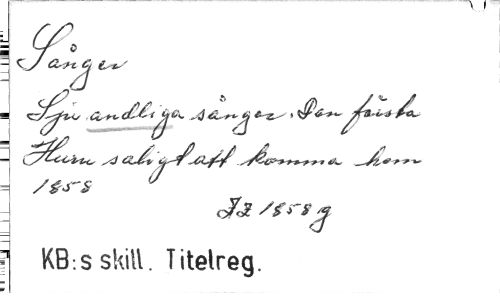 Sånger
Sju andliga sånger. Den första
Huru saligt att komma hem
1858
ZZ 1858 g
KB:s skill. Titelreg.